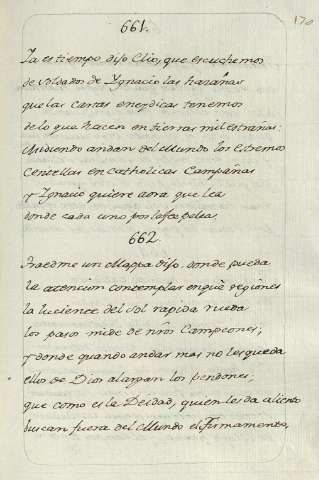 170
661.
Ya es tiempo dijo Clio, que escuchemos
de soldados de Ygnacio las hazañas
que las cartas en
tenemos
de lo que hacen en tierras mil estrañas:
Midiendo andan del Mundo los estremos
Centellas en catholicas Campañas
Y Ygnacio quiere aora que lea
donde cada uno por la fee pelea.
662.
Traedme un Mappa dijo, donde pueda
la atencion contemplar en que regiones
la luciente del sol rapida rueda
los pasos mide de nros Campeones;
y donde quando andar mas no les queda
ellos de Dios alargan los pendones;
que como es la Deidad, quien les da aliento
buscan fuera del Mundo el firmamento,